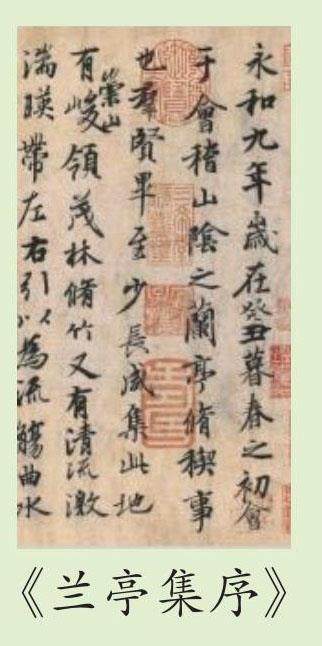 永和九年歲在癸丑暮春之初會
于會稽山陰之蘭亭脩稧事
也羣賢畢至少長咸集此地
有崇山峻領茂林脩竹又有清流激
湍暎帶左右引以為流觴曲水
《兰亭集序》